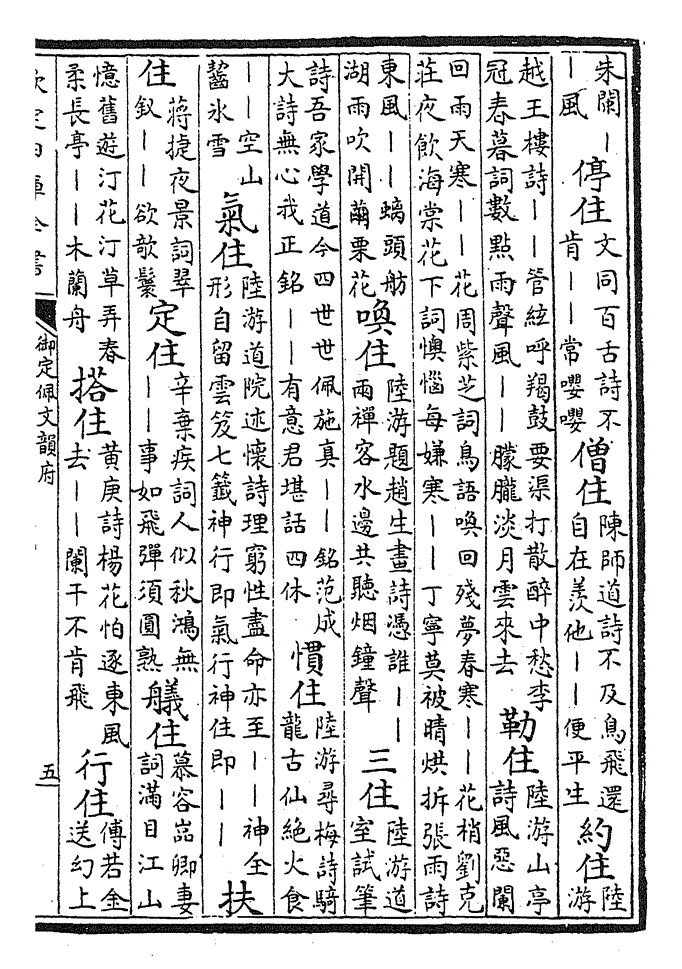 朱闌––風 停住 文同百舌詩不肯––常嚶嚶 僧住 陳師道詩不及鳥飛還自在羨他––便平生 約住 陸游
越王樓詩––管絃呼羯鼓要渠打散醉中愁李冠春暮詞數點雨聲風––朦朧淡月雲來去 勒住 陸游山亭詩風惡闌
回雨天寒––花周紫芝詞鳥語喚回殘夢春寒––花梢劉克莊夜飲海棠花下詞懊惱每嫌寒––丁寧莫被晴烘拆張雨詩
東風––螭頭舫湖雨吹開繭栗花 喚住 陸游題趙生畫詩憑誰––兩禪客水邊共聽烟鐘聲 三住 陸游道室試筆
詩吾家學道今四世世佩施真––銘范成大詩無心我正銘––有意君堪話四休 慣住 陸游尋梅詩騎龍古仙絶火食
––空山齧氷雪 氣住 陸游道院述懷詩理窮性盡命亦至––神全形自留雲笈七籤神行即氣行神住即–– 扶
住 蔣捷夜景詞翠釵––欲欹鬟 定住 辛棄疾詞人似秋鴻無––事如飛彈須圓熟 艤住 慕容嵓卿妻詞滿目江山
憶舊遊汀花汀草弄春柔長亭––木蘭舟 搭住 黃庚詩楊花怕逐東風去––闌干不肯飛 行住 傅若金送幻上
欽定四庫全書
御定佩文韻府
五